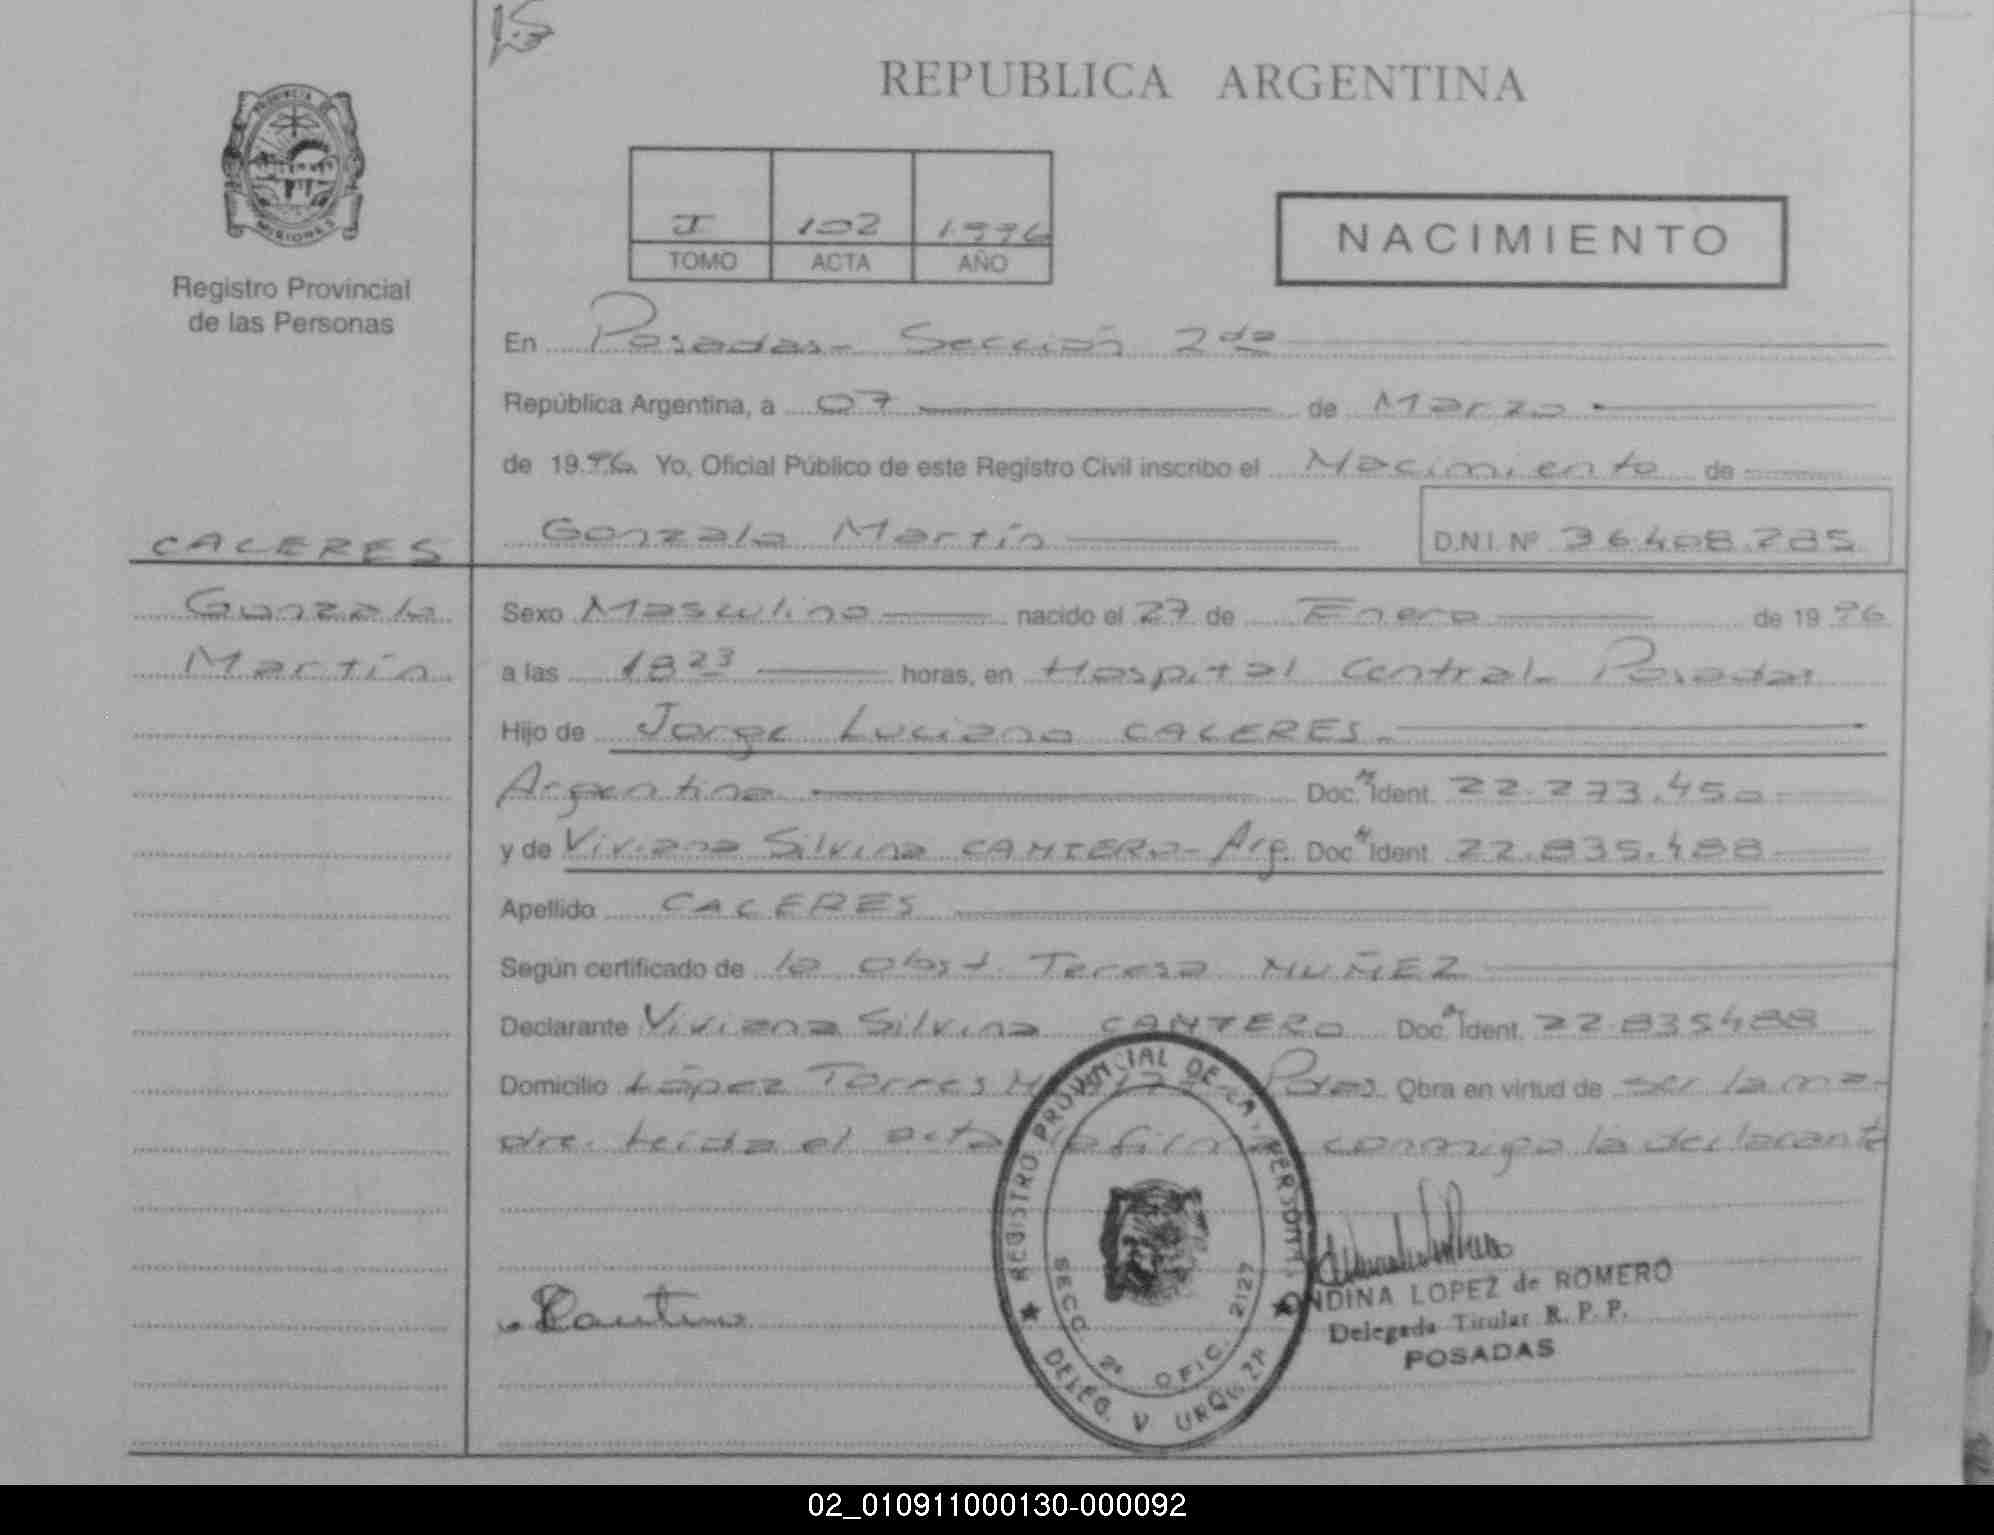 REPUBLICA ARGENTINA
PROVINCIA
MISIONES
Registro Provincial
de las Personas
I 102 1996
TOMO ACTA AÑO
NACIMIENTO
En Posadas - Sección 2da
República Argentina, a 07 de Marzo
de 1996 Yo, Oficial Público de este Registro Civil inscribo el Nacimiento de
CACERES
Gonzalo Martín D.N.I. Nº 36.408.285
Gonzalo
Martín
Sexo Masculino nacido el 27 de Enero de 1996
a las 18 23 horas, en Hospital Central - Posadas
Hijo de Jorge Luciano CACERES.-
Argentino Doc. N Ident. 22.273.450
y de Viviana Silvina CANTERO - Arg. Doc. N Ident. 22.835.488
Apellido CACERES
Según certificado de la Obst. Teresa MUÑEZ
Declarante Viviana Silvina CANTERO Doc. N Ident. 22.835488
Domicilio López Torres Pdas. Obra en virtud de ser la ma-
dre. Leída el acta la firma conmigo la declarante
REGISTRO PROVINCIAL DE LAS PERSONAS
SECC. 2ª OFIC. 2127
DELEG. V. URQUIZA
ONDINA LOPEZ de ROMERO
Delegada Titular R. P. P.
POSADAS
02_010911000130-000092